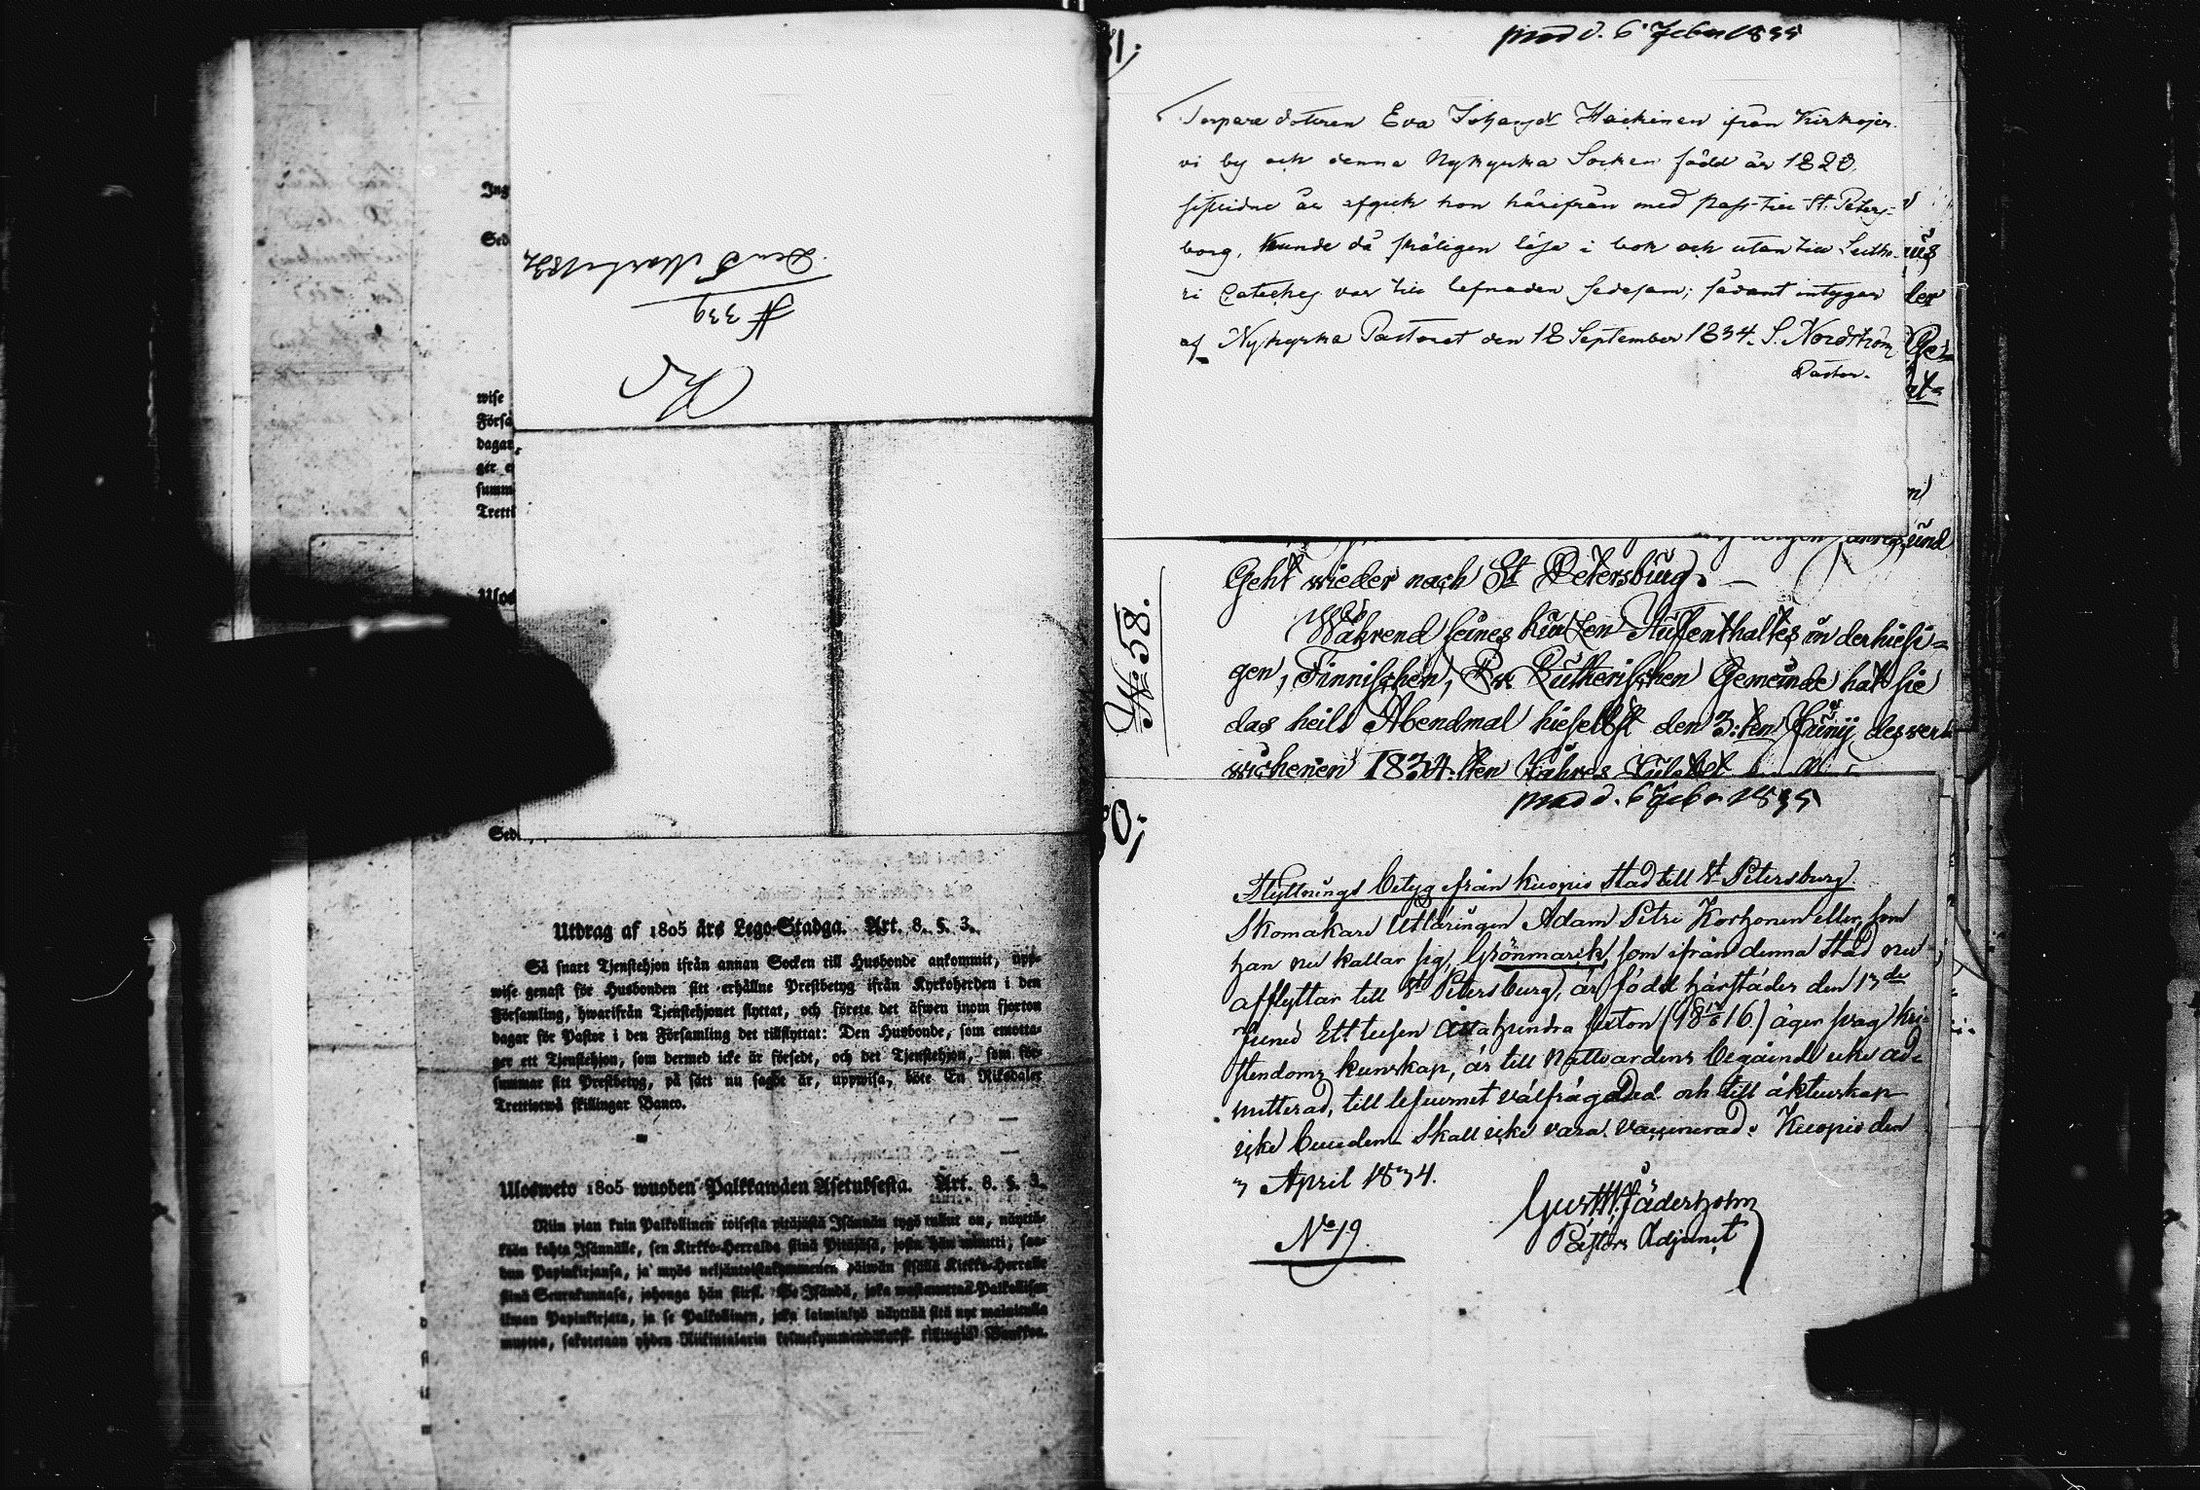 Den 5 Martii 1832.
N 339
Ing
Sed
wise
Förså
dagar
ger e
summ
Tretti
Ulos
Sed
Utdrag af 1805 års Lego-Stadga. Art. 8. §. 3.
Så snart Tjenstehjon ifrån annan Socken till Husbonde ankommit, upp-
wise genast för Husbonden sitt erhållne Prestbetyg ifrån Kyrkoherden i den
Församling, hwarifrån Tjenstehjonet flyttat, och förete det äfwen inom fjorton
dagar för Pastor i den Församling det tillflyttat: Den Husbonde, som emotta-
ger ett Tjenstehjon, som dermed icke är försedt, och det Tjenstehjon, som för-
summar sitt Prestbetyg, på sätt nu sagdt är, uppwisa, böte En Riksdaler
Trettiotwå skillingar Banco.
Ulosweto 1805 wuoden Palkkawäen Asetuksesta. Art. 8. §. 3.
Niin pian kuin Palkollinen toisesta pitäjästä Isännän tygö tullut on, näyttä-
köön kohta Isännälle, sen Kirkko-Herralda siinä Pitäjäsä, josta hän muutti, saa-
dun Papinkirjansa, ja myös neljäntoistakymmenen päiwän sisällä Kirkko-Herralle
siinä Seurakunnasa, johonga hän siirsi. Se Isändä, joka wastaanottaa Palkollisen
ilman Papinkirjata, ja se Palkollinen, joka laiminlyö näyttää sitä nyt mainitulla
muotoa, sakotetaan yhden Riikintalarin kolmekymmendäkaksi killingiä Bankkoa.
31;
prod d. 6 Febr 1835
Torpare dotteren Eva Johansdr Haickinen ifrån Kirkojer-
vi by och denna Nykyrka Socken född år 1820,
sistlidne år afgick hon härifrån med pass till St. Peters-
borg, kunde då skäligen läsa i bok och utan till Luthe-
ri Cateches var till lefnaden sedesam; sådant intygar
af Nykyrka Pastorat den 18 September 1834. S. Nordström
Pastor.
Geht wieder nach St Petersburg.
Während seines kurzen Auffenthaltes in der hiesi-
gen, Finnischen, Ev. Lutherischen Gemeinde hat sie
das heil. Abendmal hieselbst den 3:ten Junij des ver-
wichenen 1834.sten Jahres
№ 58.
30;
prod d. 6 Febr 1835
Flyttnings betyg från Kuopio Stad till St Petersburg
Skomakare Utläringen Adam Petri Korhonen eller, som
han nu kallar sig, Grönmarck, som ifrån denna stad nu
afflyttar till St Petersburg, är född härstädes den 13de
Juni Ett tusen åttahundra sexton (18 13/6 16.) äger svag kri-
stendoms kunskap, är till Nattvardens begående icke ad-
mitterad, till lefvernet välfrägdad och till äktenskap
icke bunden. Skall icke vara vaccinerad. Kuopio den
3 April 1834.
No 19.
Gust. W. Fäderholm
Pastors Adjunct